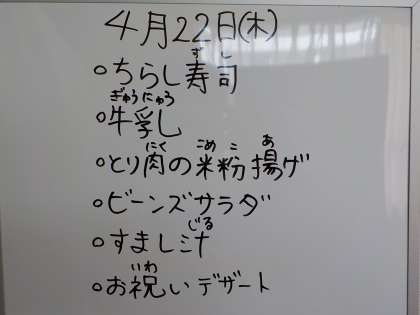 4月22日(木)
ずし
○ちらし寿司
ぎゅうにゅう
○牛乳
にく こめ こ あ
○とり肉の米粉揚げ
○ビーンズサラダ
じる
○すまし汁
いわ
○お祝いデザート